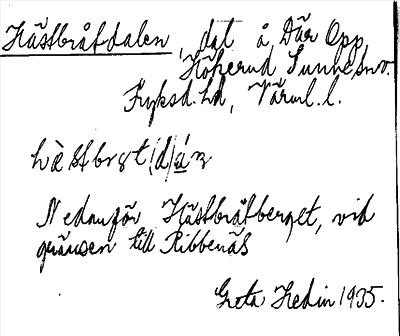 Hästbråtdalen, dal å Där Opp,
Hökerud, Sunne sn.
Fryksd. hd, Värml. l.
hàstbrɐt(d)á̱ɳ
Nedanför Hästbråtberget, vid
gränsen till Ribbenäs
Greta Hedin 1935.